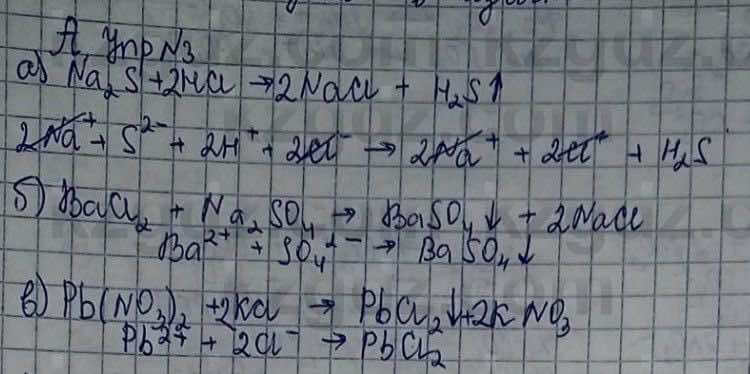 А Упр N3
а) Na₂S + 2HCl → 2NaCl + H₂S↑
2Na⁺ + S²⁻ + 2H⁺ + 2Cl⁻ → 2Na⁺ + 2Cl⁻ + H₂S
б) BaCl₂ + Na₂SO₄ → BaSO₄↓ + 2NaCl
Ba²⁺ + SO₄²⁻ → BaSO₄↓
в) Pb(NO₃)₂ + 2KCl → PbCl₂↓ + 2KNO₃
Pb²⁺ + 2Cl⁻ → PbCl₂